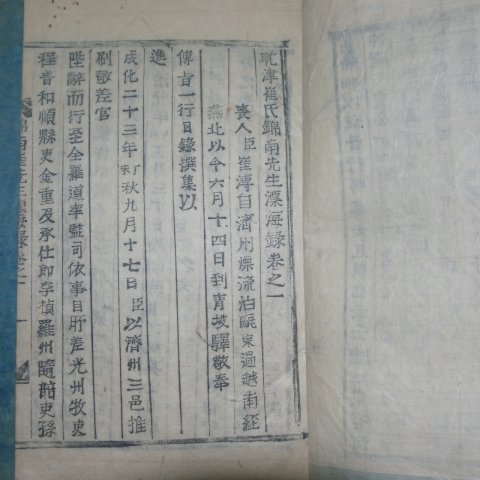 耽津崔氏錦南先生漂海錄卷之一
喪人臣崔溥自濟州漂流泊甌東過越南經
燕北以今六月十四日到青坡驛敬奉
傳旨一行日錄撰集以
進
成化二十三年丁未秋九月十七日臣以濟州三邑推
刷敬差官
陛辭而行至全羅道率監司依事目所差光州牧吏
程普和順縣吏金重及承仕郎李楨羅州隨陪吏孫
錦南崔先生漂海錄卷之一